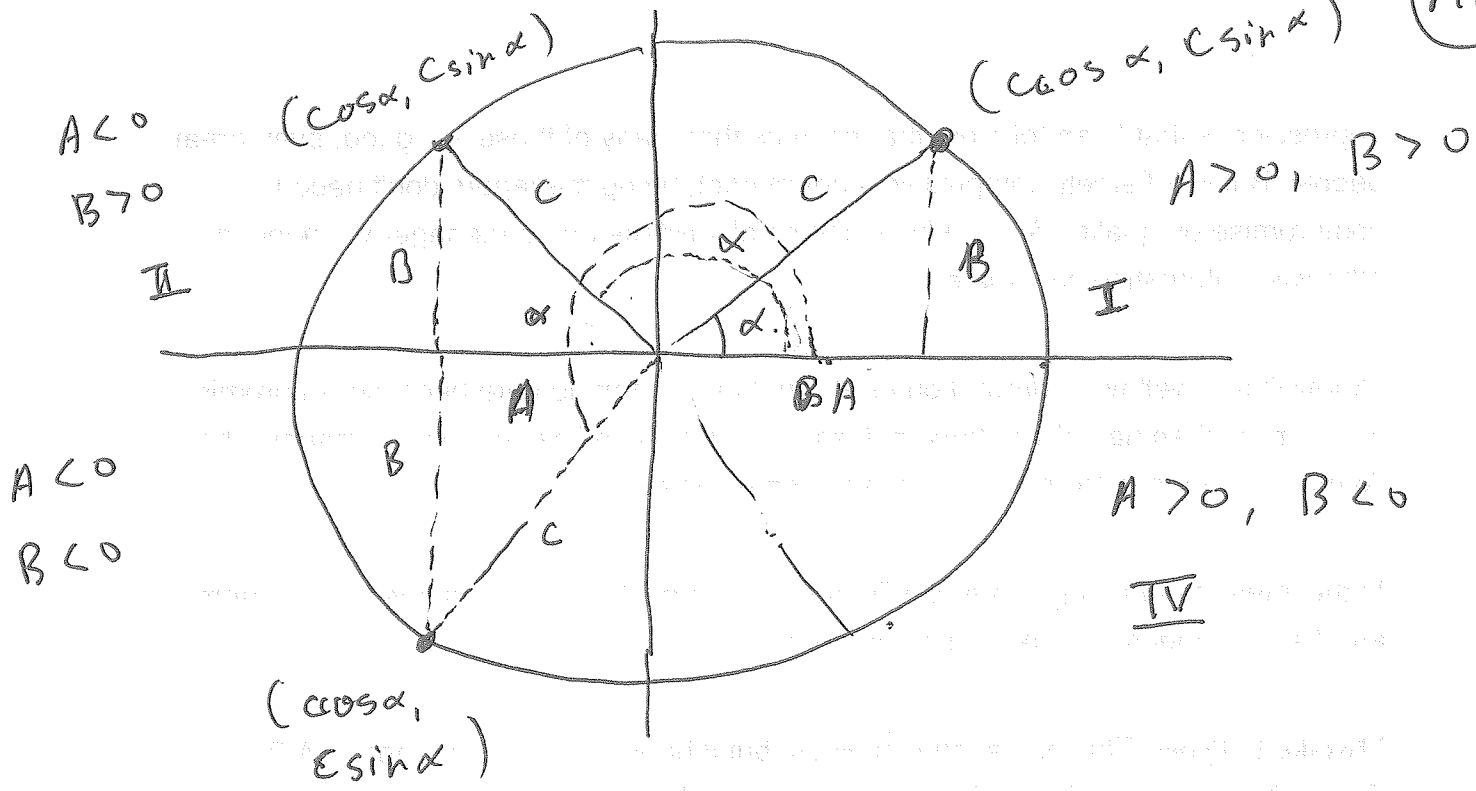 (cosα, Csinα)
(Ccos α, Csin α)
A<0
B>0
II
A>0, B>0
I
C
C
B
B
α
α
α
A
B A
B
C
A<0
B<0
A>0, B<0
IV
(ccosα,
Csinα)